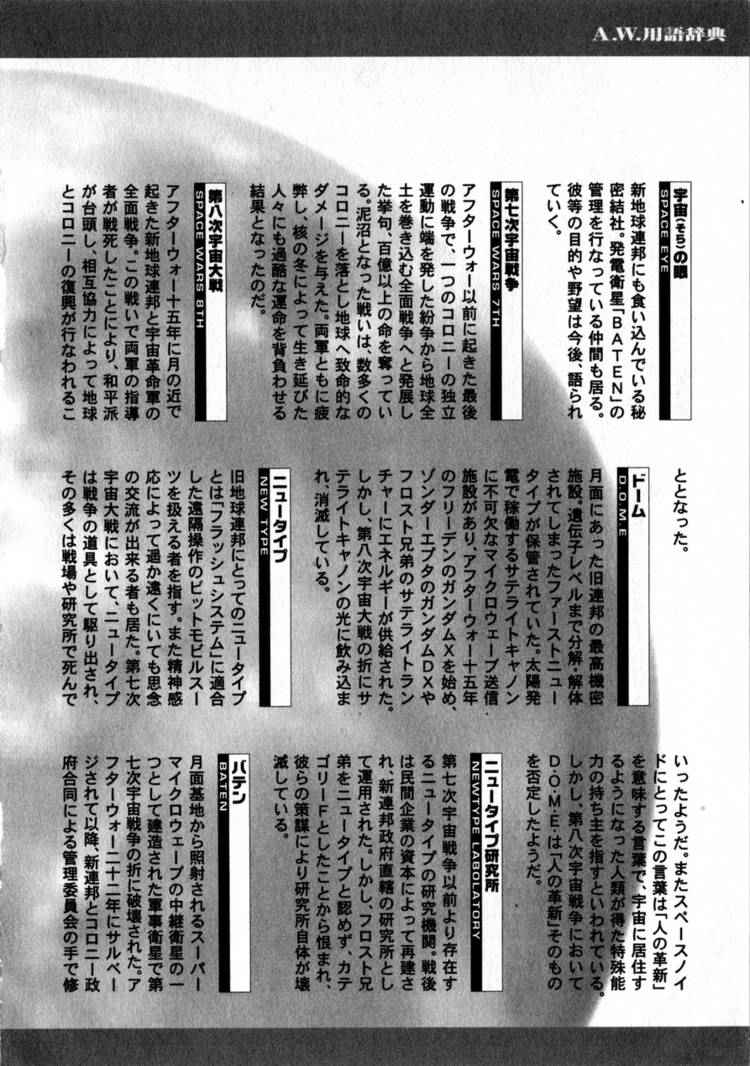 A.W.用語辞典
宇宙(そら)の眼
SPACE EYE
新地球連邦にも食い込んでいる秘
密結社。発電衛星「BATEN」の
管理を行なっている仲間も居る。
彼等の目的や野望は今後、語られ
ていく。
第七次宇宙戦争
SPACE WARS 7TH
アフターウォー以前に起きた最後
の戦争で、一つのコロニーの独立
運動に端を発した紛争から地球全
土を巻き込む全面戦争へと発展し
た挙句、百億以上の命を奪ってい
る。泥沼となった戦いは、数多くの
コロニーを落とし地球へ致命的な
ダメージを与えた。両軍ともに疲
弊し、核の冬によって生き延びた
人々にも過酷な運命を背負わせる
結果となったのだ。
第八次宇宙大戦
SPACE WARS 8TH
アフターウォー十五年に月の近で
起きた新地球連邦と宇宙革命軍の
全面戦争。この戦いで両軍の指導
者が戦死したことにより、和平派
が台頭し、相互協力によって地球
とコロニーの復興が行なわれるこ
ととなった。
ドーム
D.O.M.E
月面にあった旧連邦の最高機密
施設。遺伝子レベルまで分解・解体
されてしまったファーストニュー
タイプが保管されていた。太陽発
電で稼働するサテライトキャノン
に不可欠なマイクロウェーブ送信
施設があり、アフターウォー十五年
のフリーデンのガンダムXを始め、
ゾンダーエプタのガンダムDXや
フロスト兄弟のサテライトラン
チャーにエネルギーが供給された。
しかし、第八次宇宙大戦の折にサ
テライトキャノンの光に飲み込ま
れ、消滅している。
ニュータイプ
NEW TYPE
旧地球連邦にとってのニュータイプ
とは「フラッシュシステム」に適合
した遠隔操作のビットモビルスー
ツを扱える者を指す。また精神感
応によって遥か遠くにいても思念
の交流が出来る者も居た。第七次
宇宙大戦において、ニュータイプ
は戦争の道具として駆り出され、
その多くは戦場や研究所で死んで
いったようだ。またスペースノイ
ドにとってこの言葉は「人の革新」
を意味する言葉で、宇宙に居住す
るようになった人類が得た特殊能
力の持ち主を指すといわれている。
しかし、第八次宇宙戦争において
D.O.M.E.は「人の革新」そのもの
を否定したようだ。
ニュータイプ研究所
NEWTYPE LABOLATORY
第七次宇宙戦争以前より存在す
るニュータイプの研究機関。戦後
は民間企業の資本によって再建さ
れ、新連邦政府直轄の研究所とし
て運用された。しかし、フロスト兄
弟をニュータイプと認めず、カテ
ゴリーFとしたことから恨まれ、
彼らの策謀により研究所自体が壊
滅している。
バテン
BATEN
月面基地から照射されるスーパー
マイクロウェーブの中継衛星の一
つとして建造された軍事衛星で第
七次宇宙戦争の折に破壊された。ア
フターウォー二十二年にサルベー
ジされて以降、新連邦とコロニー政
府合同による管理委員会の手で修